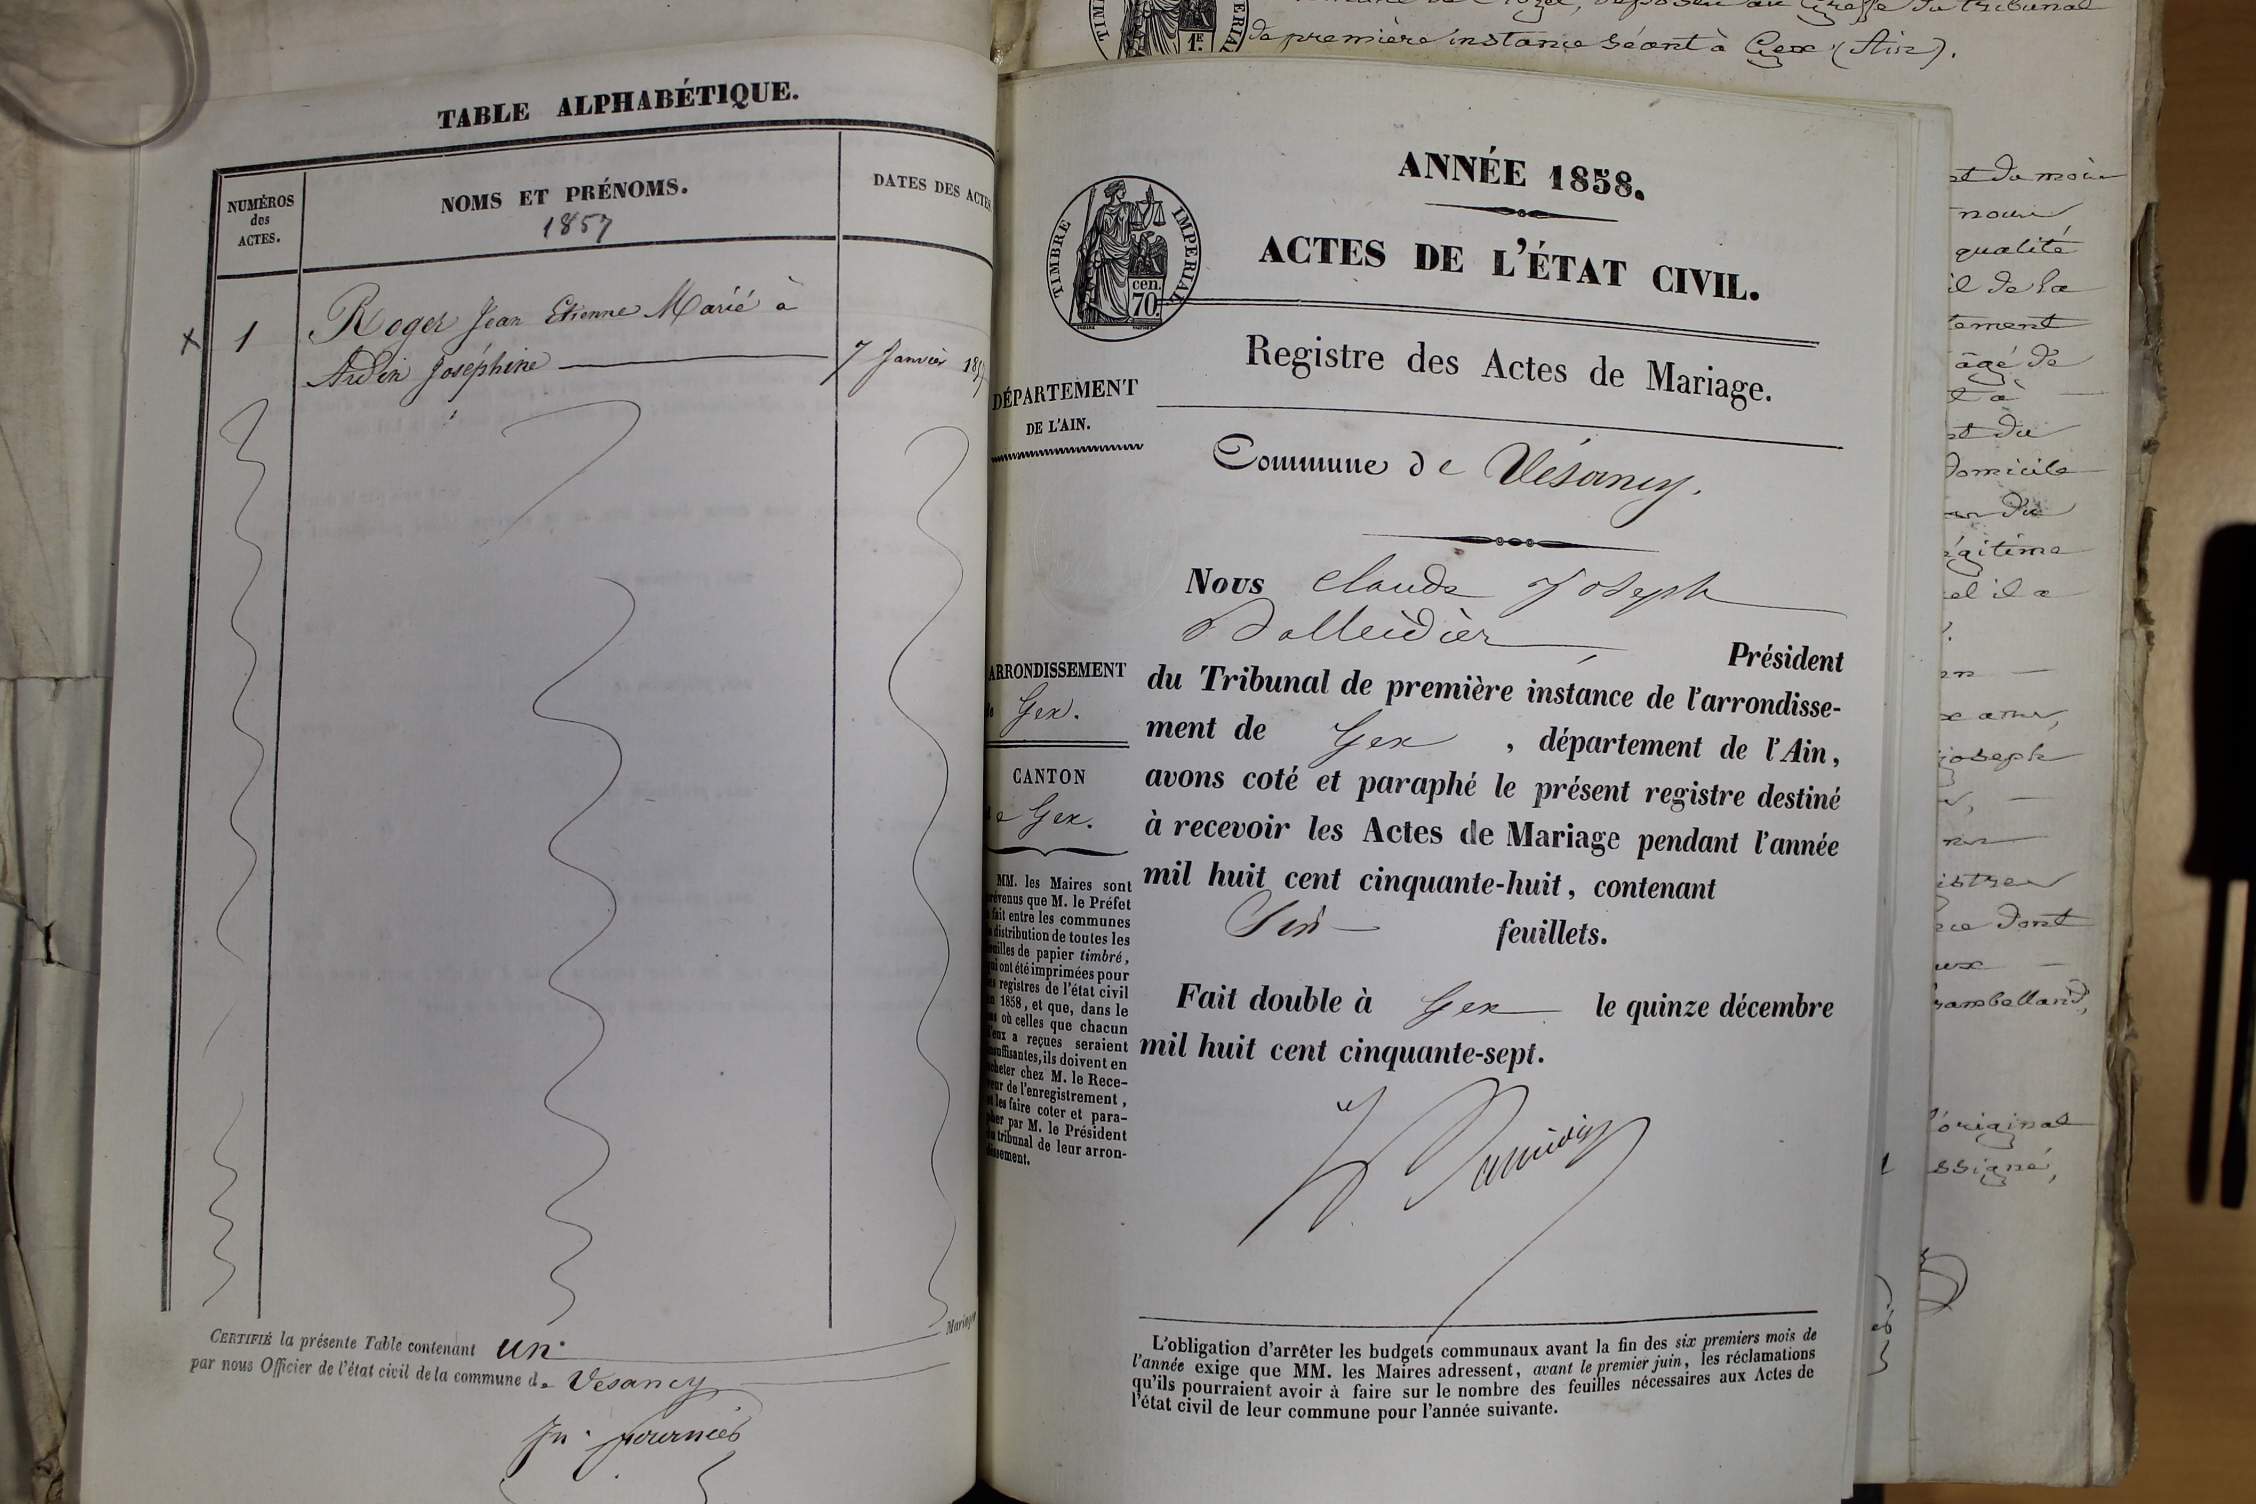 TABLE ALPHABÉTIQUE.
NUMÉROS
des
ACTES.
NOMS ET PRÉNOMS.
1857
DATES DES ACTES
1
Roger Jean Etienne Marié à
Ardin Joséphine
7 Janvier 1857
CERTIFIÉ la présente Table contenant un
Mariage
par nous Officier de l'état civil de la commune de Vésancy
Jn. Fournier
1E
de première instance séant à Gex (Ain).
ANNÉE 1858.
TIMBRE IMPERIAL
cen.
70.
ACTES DE L'ÉTAT CIVIL.
Registre des Actes de Mariage.
DÉPARTEMENT
DE L'AIN.
Commune de Vésancy.
Nous Claude Joseph
Balleidier, Président
du Tribunal de première instance de l'arrondisse-
ment de Gex, département de l'Ain,
avons coté et paraphé le présent registre destiné
à recevoir les Actes de Mariage pendant l'année
mil huit cent cinquante-huit, contenant
Six feuillets.
Fait double à Gex le quinze décembre
mil huit cent cinquante-sept.
ARRONDISSEMENT
de Gex.
CANTON
de Gex.
MM. les Maires sont
prévenus que M. le Préfet
a fait entre les communes
la distribution de toutes les
feuilles de papier timbré,
qui ont été imprimées pour
les registres de l'état civil
en 1858, et que, dans le
cas où celles que chacun
d'eux a reçues seraient
insuffisantes, ils doivent en
acheter chez M. le Rece-
veur de l'enregistrement,
et les faire coter et para-
pher par M. le Président
du tribunal de leur arron-
dissement.
L'obligation d'arrêter les budgets communaux avant la fin des six premiers mois de
l'année exige que MM. les Maires adressent, avant le premier juin, les réclamations
qu'ils pourraient avoir à faire sur le nombre des feuilles nécessaires aux Actes de
l'état civil de leur commune pour l'année suivante.
qualité
il de la
âgé de
domicile
joseph
dont
l'original